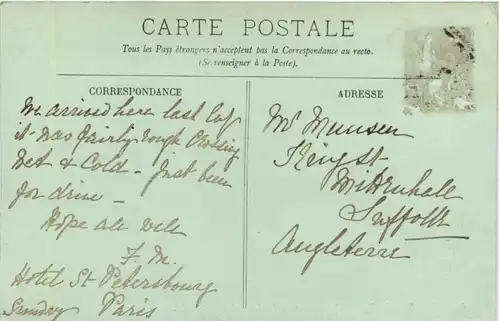 CARTE POSTALE
Tous les Pays étrangers n'acceptent pas la Correspondance au recto.
(Se renseigner à la Poste).
CORRESPONDANCE
We arrived here last
it was fairly rough crossing
Wet & Cold - Just been
for drive -
Hope all well
F. M.
Hotel St Petersbourg
Sunday Paris
ADRESSE
Mr Munsen
King St
Mildenhall
Suffolk
Angleterre